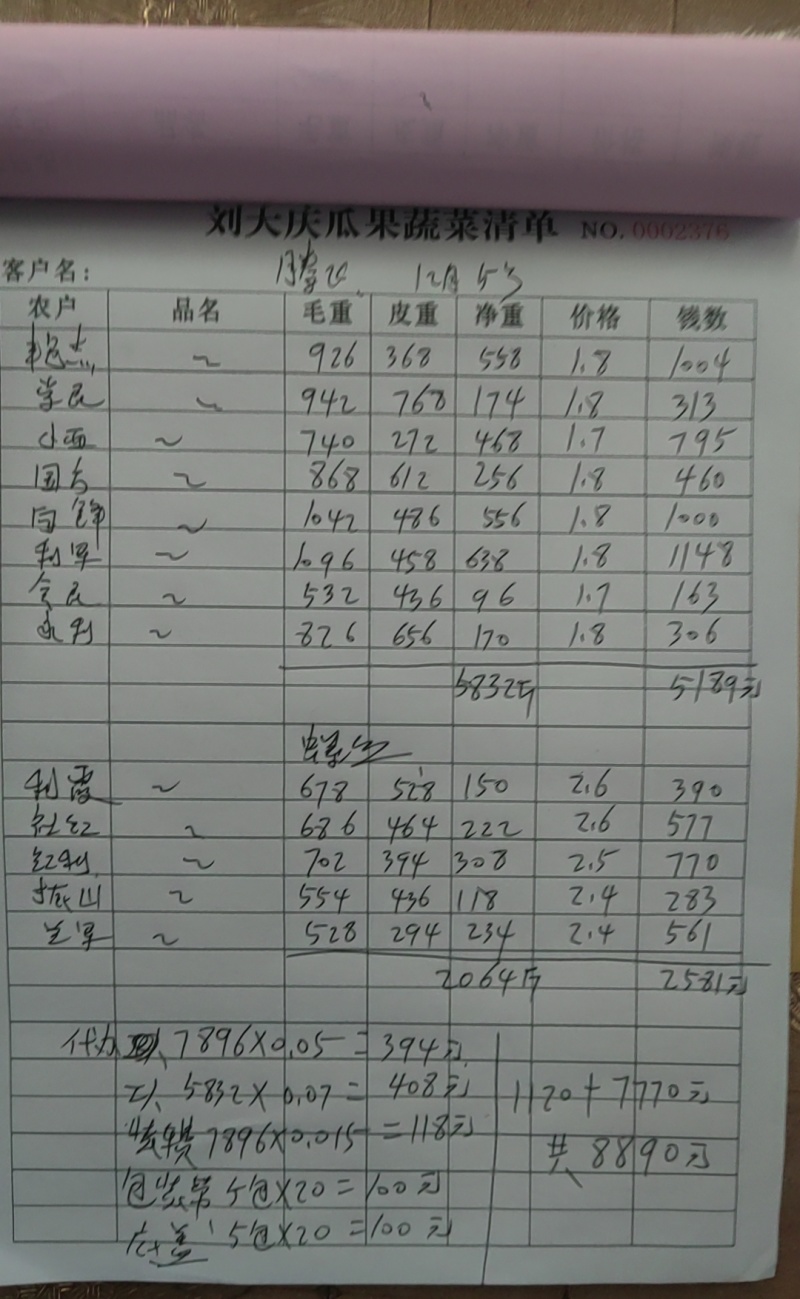 刘大庆瓜果蔬菜清单 NO.0002376
客户名： 12月5号
农户 品名 毛重 皮重 净重 价格 钱数
~ 926 368 558 1.8 1004
学民 ~ 942 768 174 1.8 313
小西 ~ 740 272 468 1.7 795
国方 ~ 868 612 256 1.8 460
向锋 ~ 1042 486 556 1.8 1000
利军 ~ 1096 458 638 1.8 1148
会民 ~ 532 436 96 1.7 163
永利 ~ 826 656 170 1.8 306
5832斤 5189元
利霞 ~ 678 528 150 2.6 390
~ 686 464 222 2.6 577
红利 ~ 702 394 308 2.5 770
~ 554 436 118 2.4 283
~ 528 294 234 2.4 561
2064斤 2581元
代办 7896×0.05=394元
工人 5832×0.07=408元
7896×0.015=118元
1120+7770元
共 8890元
包装袋 5包×20=100元
5包×20=100元